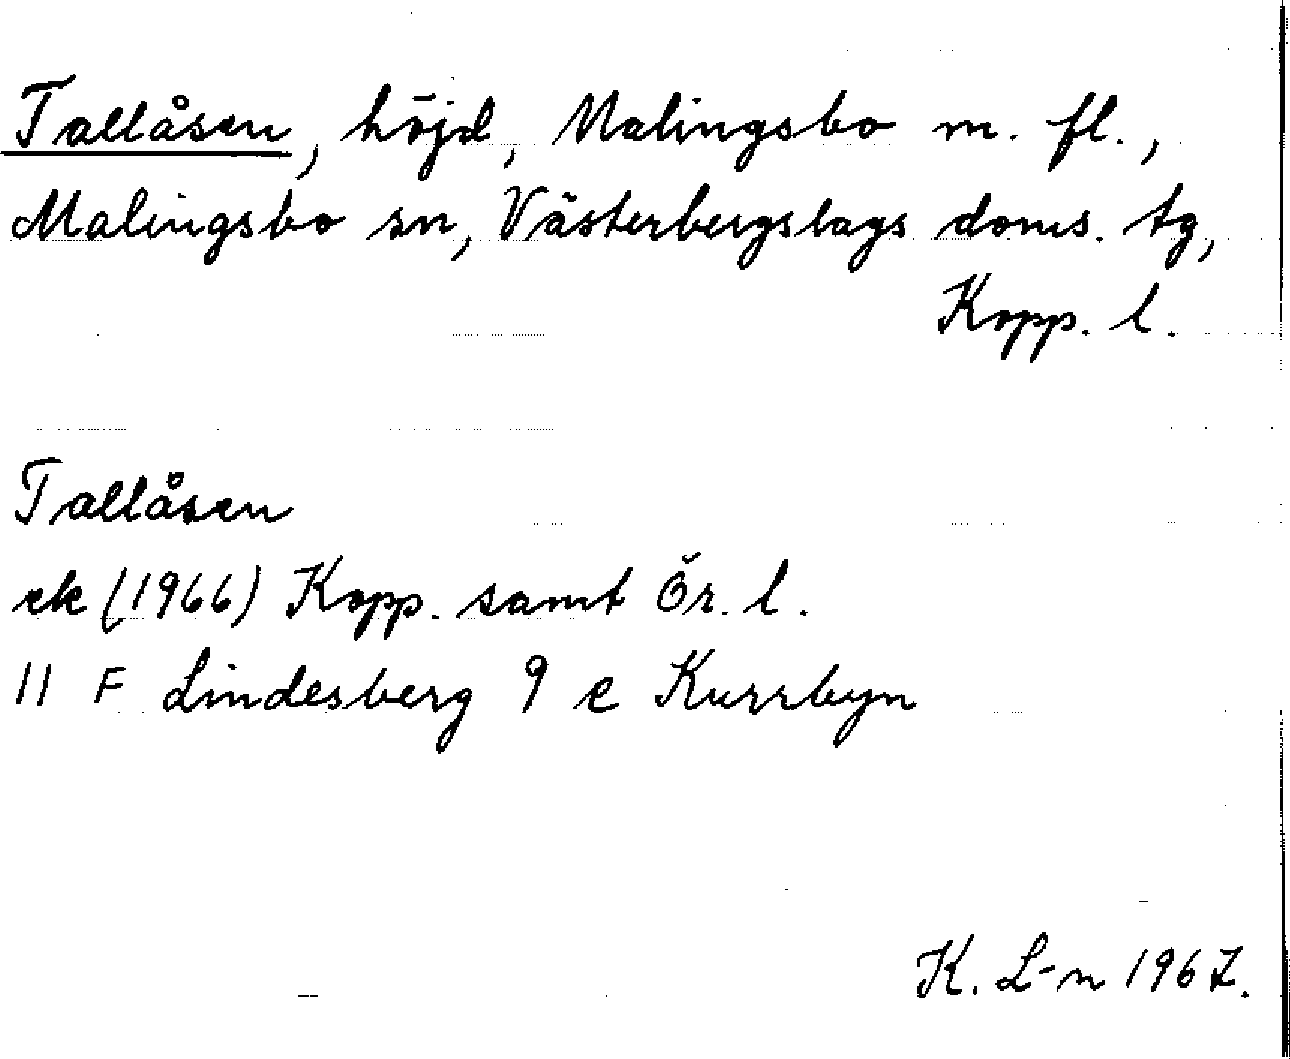 Tallåsen, höjd, Malingsbo m. fl.,
Malingsbo sn, Västerbergslags doms. tg,
Kopp. l.
Tallåsen
ek (1966) Kopp. samt Ör. l.
11 F Lindesberg 9 e Kurrbyn
K. L-n 1967.